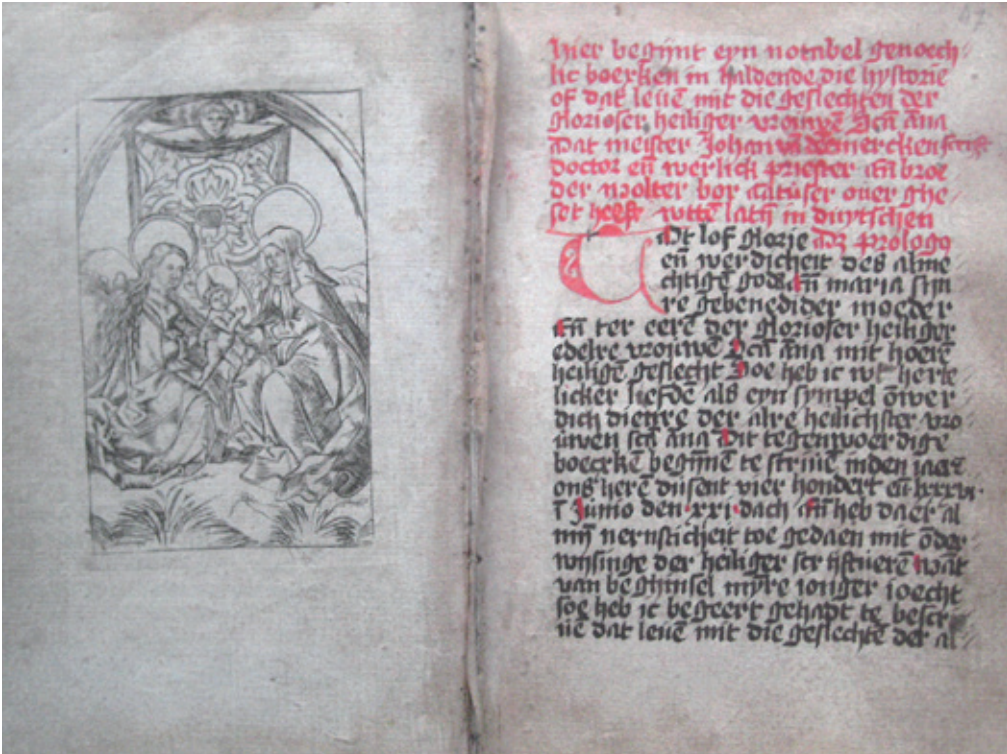 47
Hier begijnt eyn notabel genoech
lic boexken in haldende die hystorie
of dat leuē mit die geslechten der
glorioser heiliger vrouwē Scā āna
Dat meister Johan vā dēmercken screef
doctor eñ werlick priester eñ broe
der wolter bor catuser ouer ghe
set heeft wttē latin in duytschen
Tot lof glorie Dat prologus
eñ werdicheit des alme
chtigē gods eñ maria sijn
re gebenedider moeder
eñ ter eerē der glorioser heiliger
edelre vrouwē Scā āna mit hoerē
heiligē geslecht Soe heb ic wt herte
licker liefdē als eyn sympel ōwer
dich dienre der alre heilichster vro
uwen scā āna Dit tegenwoerdige
boecxkē begīnē te scriuē inden iaerē
ons herē dusent vier hondert eñ lxxxvi
ī Junio den xxi dach eñ heb daer al
mijn nernsticheit toe gedaen mit ōder
wijsinge der heiliger scriftuerē Wāt
van beghinsel mijre ionger ioecht
soe heb ic begeert gehapt te bescri
uē dat leuē mit die geslechtē der al